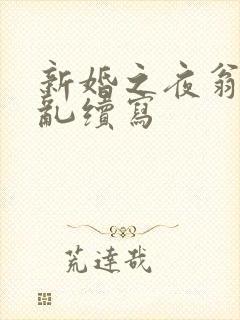 新婚之夜翁
亂續寫
荒達哉